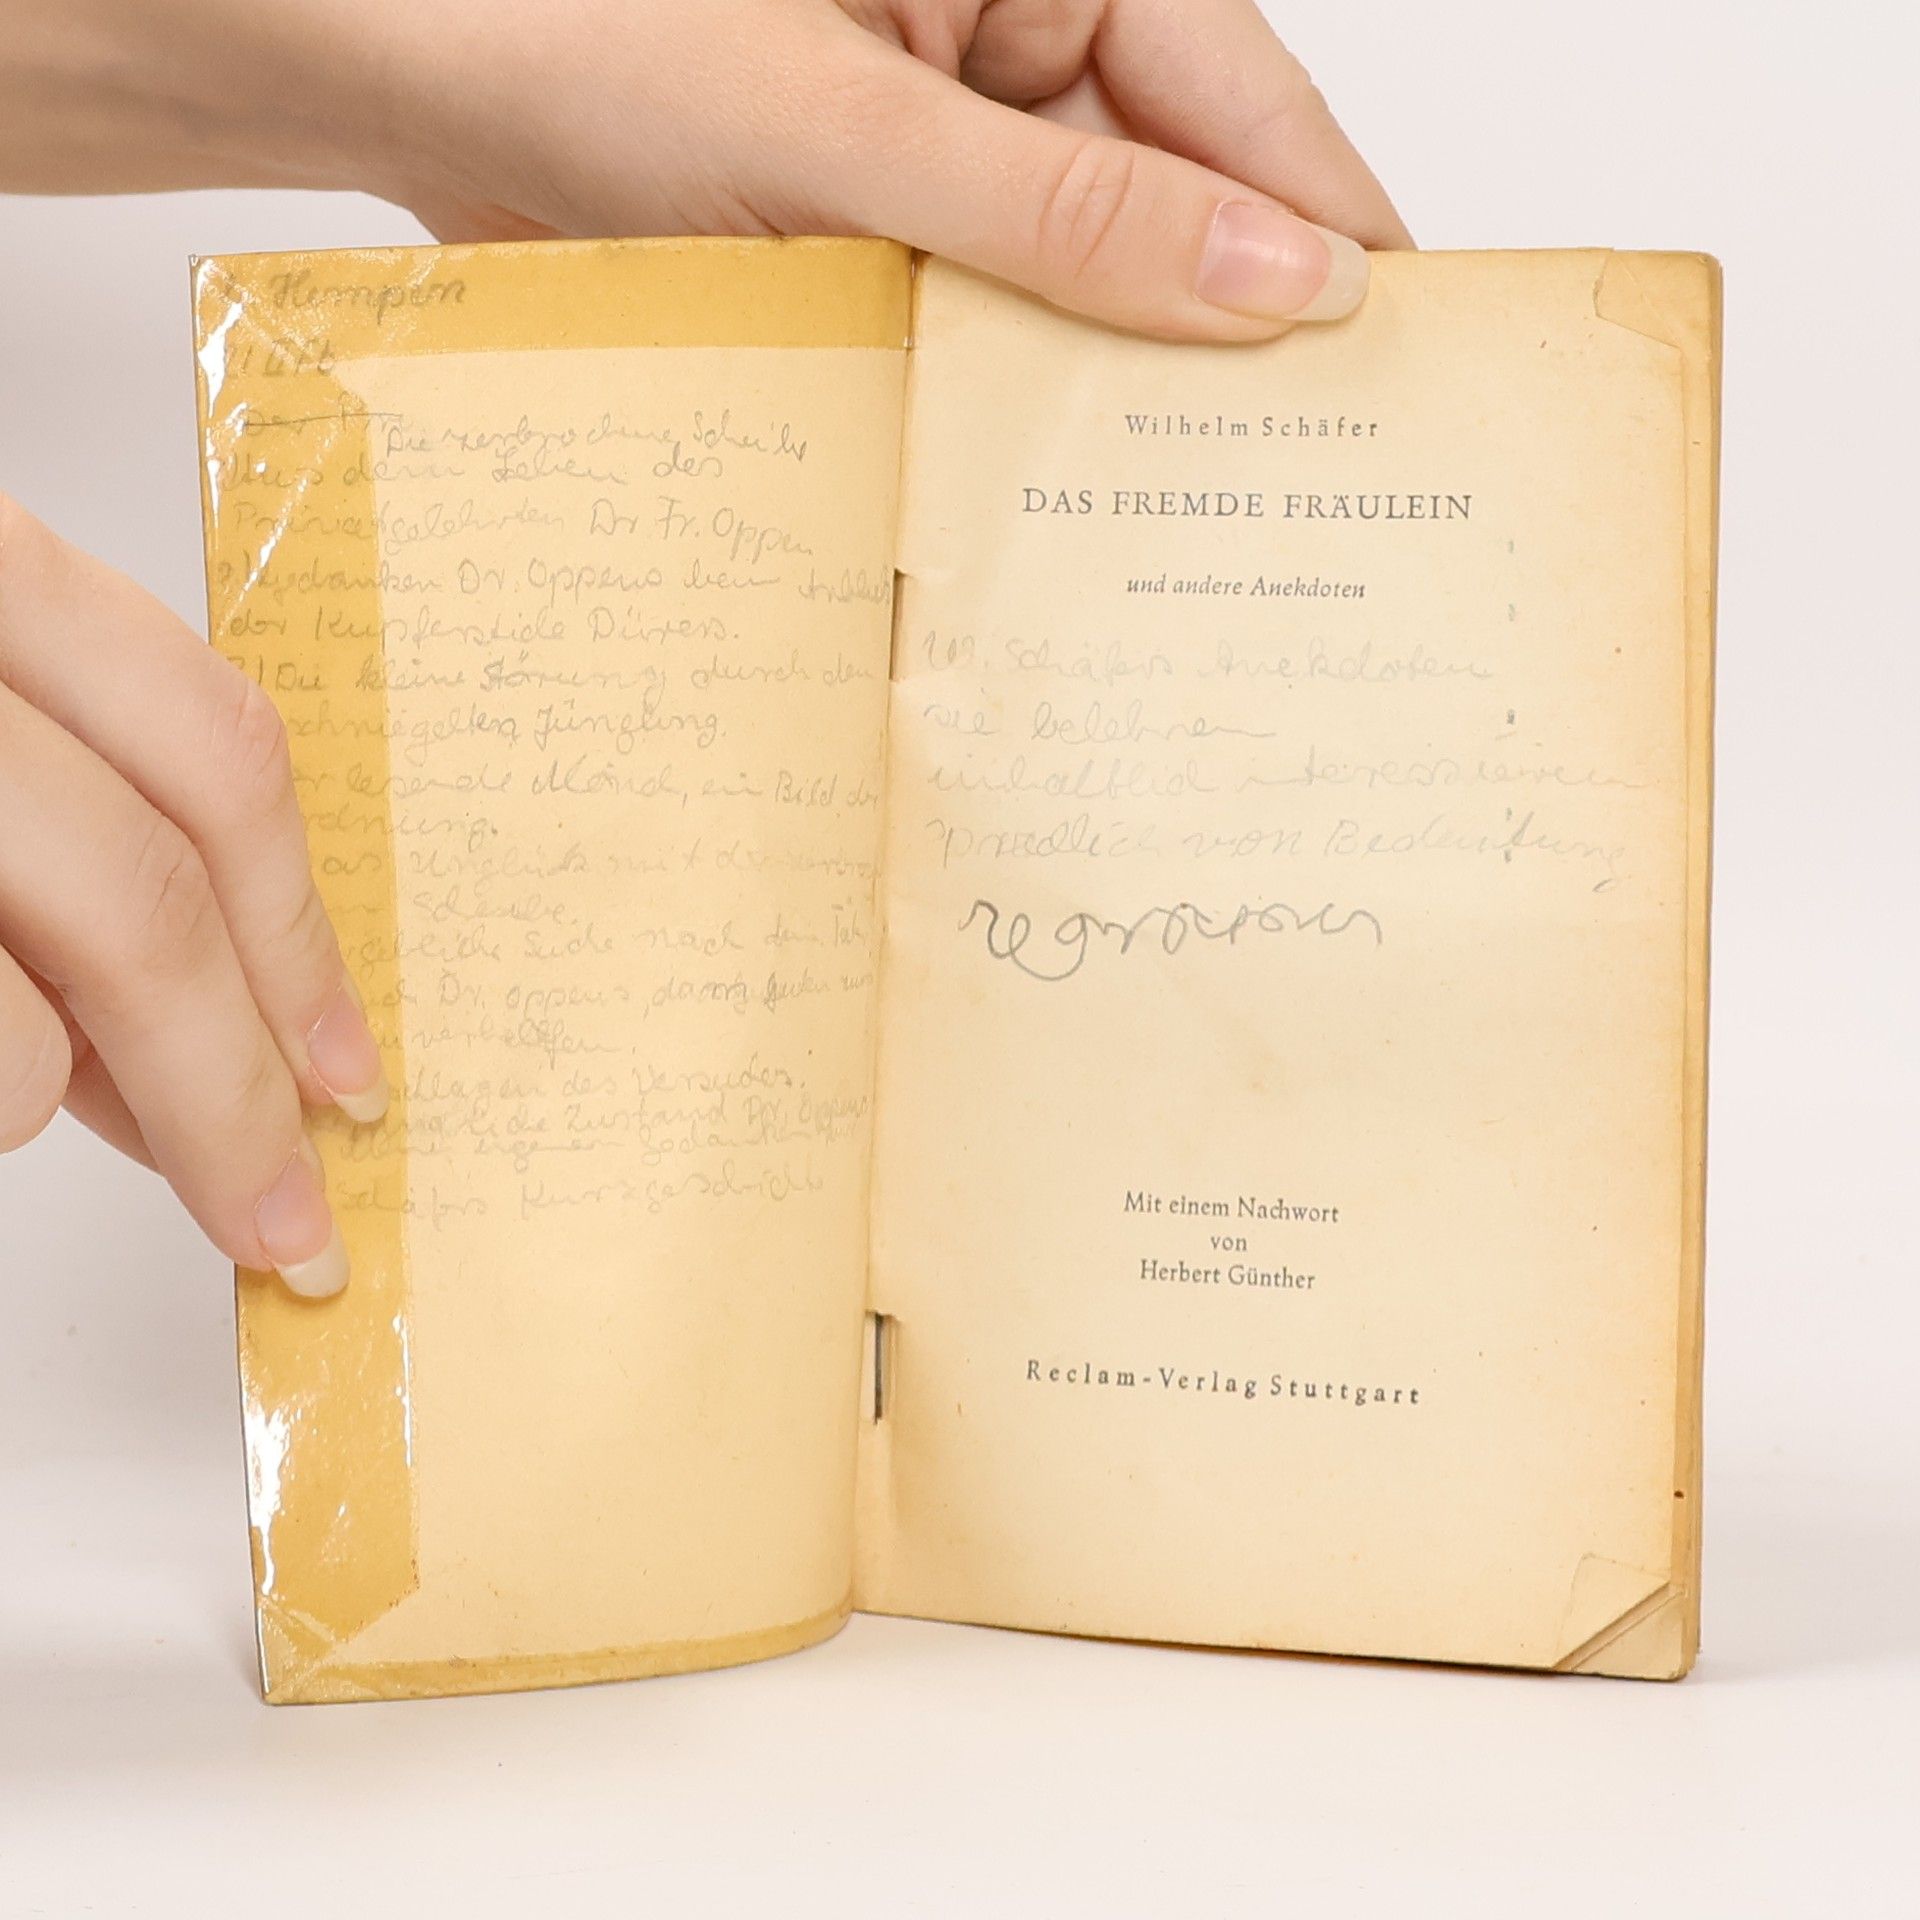 Hempen
Die zerbrochene Scheibe
Aus dem Leben des
Privatgelehrten Dr. Fr. Oppen
Gedanken Dr. Oppens beim Anblick
der Kupferstiche Dürers.
Die kleine Störung durch den
schniegelten Jüngling.
lesende Mönch, ein Bild der
rdnung.
as Unglück mit der
Scheibe.
gebliche Suche nach dem Tät
Dr. Oppens,
zu verhelfen.
schlagen des Versuches.
Zustand Dr. Oppens
Meine eigenen Gedanken
Schäfers Kurzgeschichte
Wilhelm Schäfer
DAS FREMDE FRÄULEIN
und andere Anekdoten
W. Schäfers Anekdoten
sie belehren
inhaltlich interessieren
sprachlich von Bedeutung
Mit einem Nachwort
von
Herbert Günther
Reclam-Verlag Stuttgart